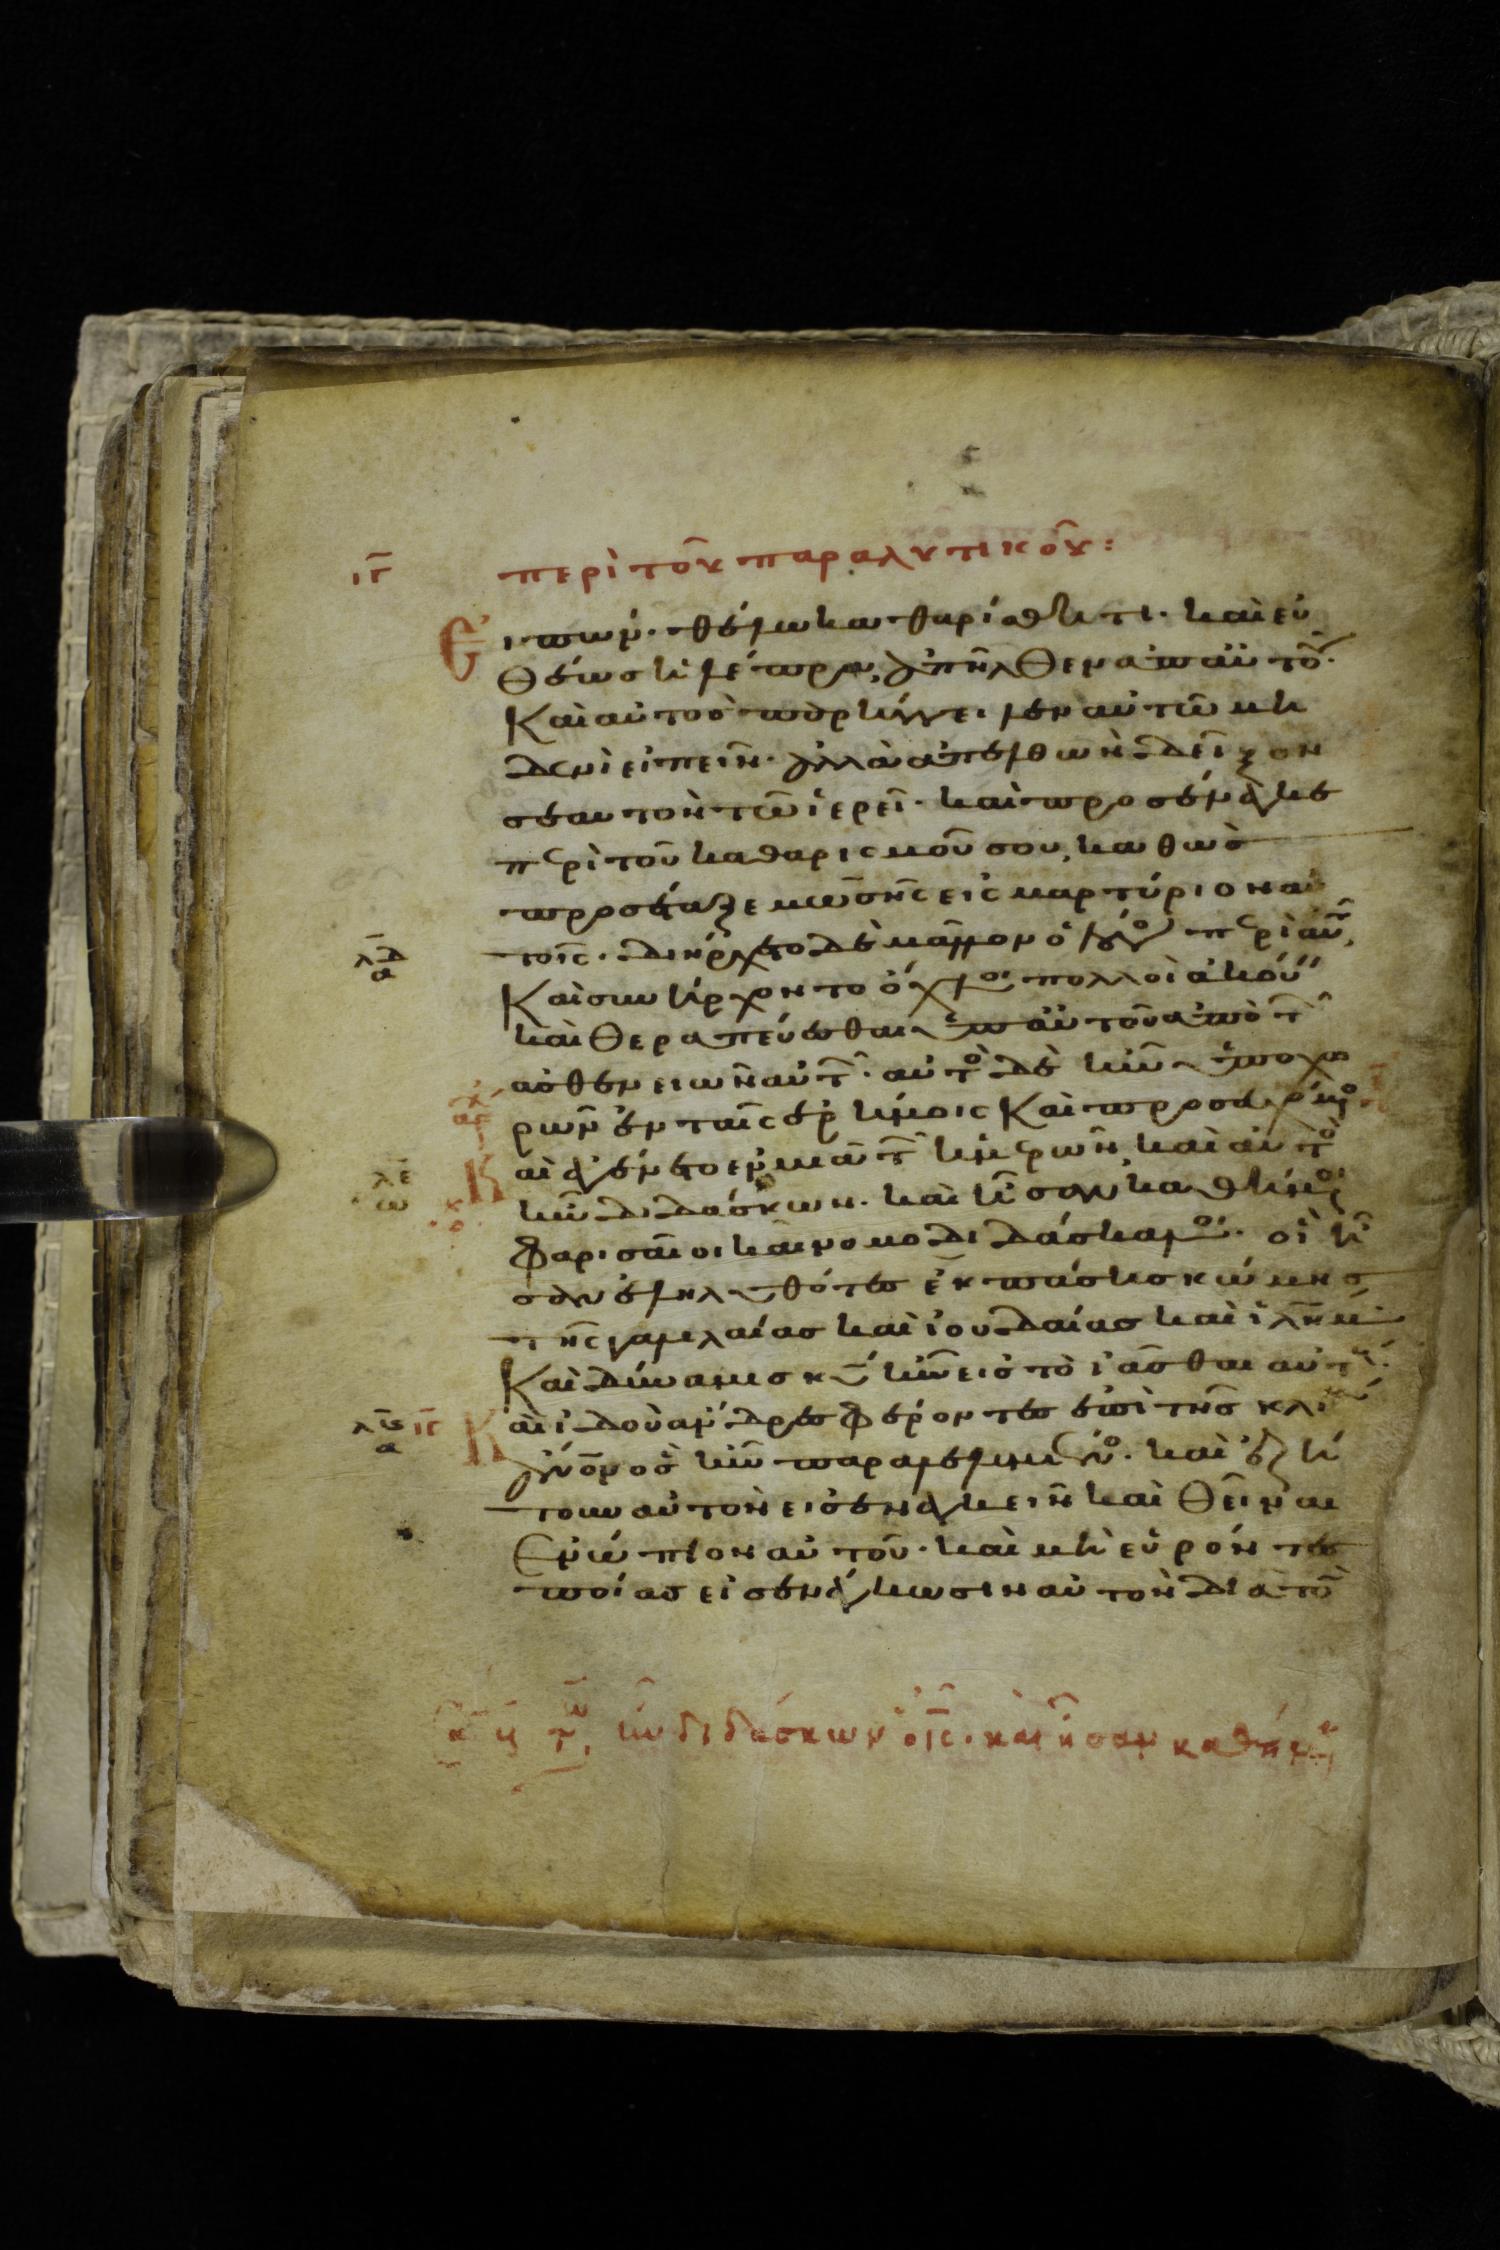 ιγ περὶ τοῦ παραλυτικοῦ:
Εἰπών· θέλω καθαρίσθητι· καὶ εὐ
θέως ἡ λέπρα, ἀπῆλθεν ἀπ αὐτοῦ·
Καὶ αὐτὸς παρήγγειλεν αὐτῶ μη
δενὶ εἰπεῖν· ἀλλὰ ἀπελθὼν δεῖξον
σεαυτὸν τῶ ἱερεῖ· καὶ προσένεγκε
περὶ τοῦ καθαρισμοῦ σου, καθὼς
προσέταξε μωσῆς εἰς μαρτύριον αὐ
λδ α τοῖς· διήρχετο δὲ μᾶλλον ὁ λόγο περὶ αὐτοῦ,
Καὶ συνήρχοντο ὄχλοι πολλοὶ ἀκού
καὶ θεραπεύεσθαι ὑπ αὐτοῦ ἀπὸ τ
ἀσθενειῶν αὐτ· αὐτὸ δὲ ἦν ὑποχω
ρῶν ἐν ταῖς ἐρήμοις Καὶ προσευχόμενο
λε ω Καὶ ἐγένετο ἐν μιᾶ τ ἡμερῶν, καὶ αὐτὸ
ἦν διδάσκων· καὶ ἦσαν καθήμενοι
φαρισαῖοι καὶ νομοδιδάσκαλοι· οἳ ἦ
σαν ἐληλυθότες ἐκ πάσης κώμης
τῆς γαλιλαίας καὶ ἰουδαίας καὶ ἱλημ
Καὶ δύναμις κυ ἦν εἰς τὸ ἰᾶσθαι αὐτού·
λς α ιγ Καὶ ἰδοὺ ἄνδρες φέροντες ἐπὶ τῆς κλι
ἄνον ὃς ἦν παραλελυμένο· καὶ ἐζή
τουν αὐτὸν εἰσενεγκεῖν καὶ θεῖναι
Ἐνώπιον αὐτοῦ· καὶ μὴ εὑρόντες
ποίας εἰσενέγκωσιν αὐτὸν διὰ τὸ
ἦν διδάσκων ὁ ις· καὶ ἦσαν καθήμ